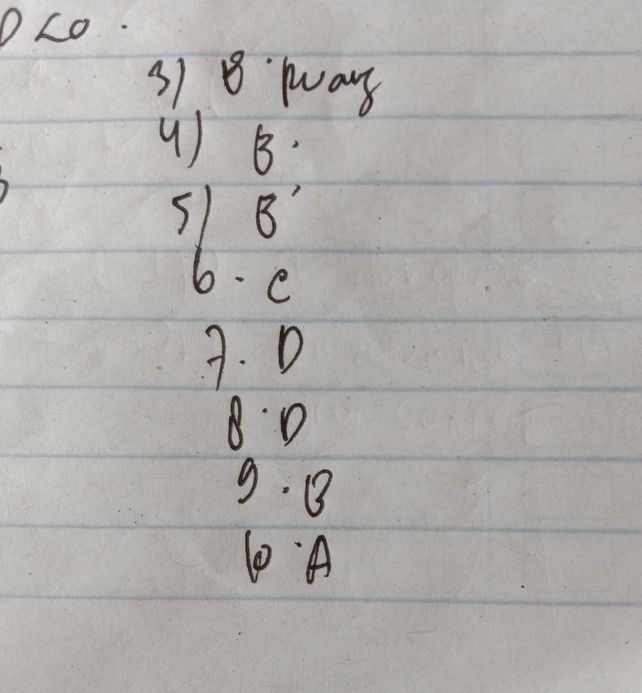 D < 0 .
3) B.
4) B.
5) B
6. C
7. D
8. D
9. B
10. A